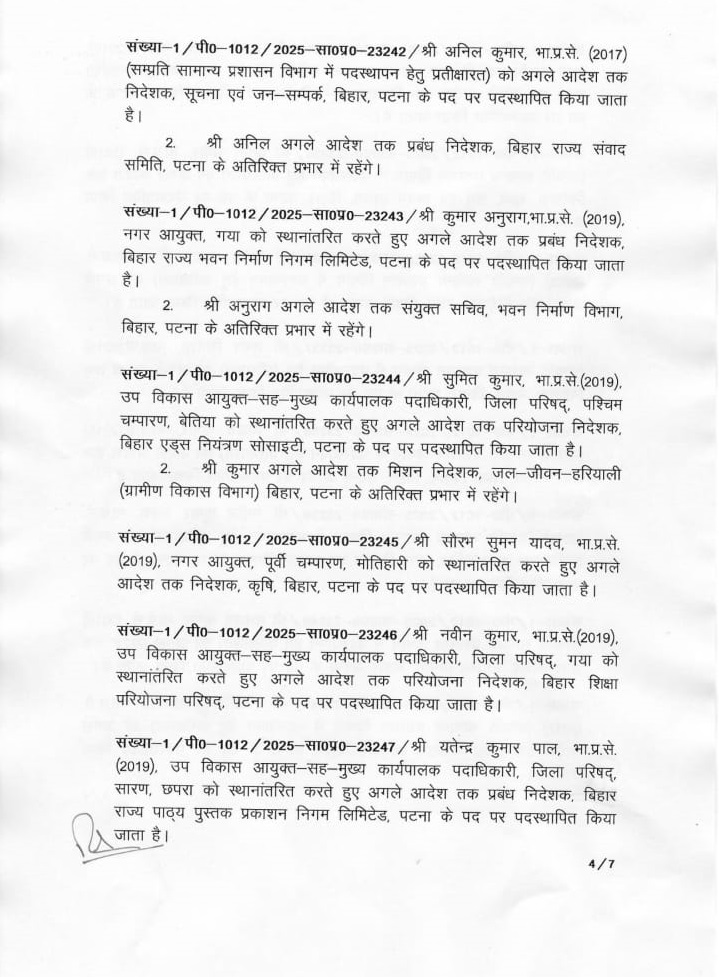 संख्या–1/पी0–1012/2025–सा0प्र0–23242/श्री अनिल कुमार, भा.प्र.से. (2017)
(सम्प्रति सामान्य प्रशासन विभाग में पदस्थापन हेतु प्रतीक्षारत) को अगले आदेश तक
निदेशक, सूचना एवं जन–सम्पर्क, बिहार, पटना के पद पर पदस्थापित किया जाता
है।
2. श्री अनिल अगले आदेश तक प्रबंध निदेशक, बिहार राज्य संवाद
समिति, पटना के अतिरिक्त प्रभार में रहेंगे।
संख्या–1/पी0–1012/2025–सा0प्र0–23243/श्री कुमार अनुराग,भा.प्र.से. (2019),
नगर आयुक्त, गया को स्थानांतरित करते हुए अगले आदेश तक प्रबंध निदेशक,
बिहार राज्य भवन निर्माण निगम लिमिटेड, पटना के पद पर पदस्थापित किया जाता
है।
2. श्री अनुराग अगले आदेश तक संयुक्त सचिव, भवन निर्माण विभाग,
बिहार, पटना के अतिरिक्त प्रभार में रहेंगे।
संख्या–1/पी0–1012/2025–सा0प्र0–23244/श्री सुमित कुमार, भा.प्र.से.(2019),
उप विकास आयुक्त–सह–मुख्य कार्यपालक पदाधिकारी, जिला परिषद्, पश्चिम
चम्पारण, बेतिया को स्थानांतरित करते हुए अगले आदेश तक परियोजना निदेशक,
बिहार एड्स नियंत्रण सोसाइटी, पटना के पद पर पदस्थापित किया जाता है।
2. श्री कुमार अगले आदेश तक मिशन निदेशक, जल–जीवन–हरियाली
(ग्रामीण विकास विभाग) बिहार, पटना के अतिरिक्त प्रभार में रहेंगे।
संख्या–1/पी0–1012/2025–सा0प्र0–23245/श्री सौरभ सुमन यादव, भा.प्र.से.
(2019), नगर आयुक्त, पूर्वी चम्पारण, मोतिहारी को स्थानांतरित करते हुए अगले
आदेश तक निदेशक, कृषि, बिहार, पटना के पद पर पदस्थापित किया जाता है।
संख्या–1/पी0–1012/2025–सा0प्र0–23246/श्री नवीन कुमार, भा.प्र.से.(2019),
उप विकास आयुक्त–सह–मुख्य कार्यपालक पदाधिकारी, जिला परिषद्, गया को
स्थानांतरित करते हुए अगले आदेश तक परियोजना निदेशक, बिहार शिक्षा
परियोजना परिषद्, पटना के पद पर पदस्थापित किया जाता है।
संख्या–1/पी0–1012/2025–सा0प्र0–23247/श्री यतेन्द्र कुमार पाल, भा.प्र.से.
(2019), उप विकास आयुक्त–सह–मुख्य कार्यपालक पदाधिकारी, जिला परिषद्,
सारण, छपरा को स्थानांतरित करते हुए अगले आदेश तक प्रबंध निदेशक, बिहार
राज्य पाठ्य पुस्तक प्रकाशन निगम लिमिटेड, पटना के पद पर पदस्थापित किया
जाता है।
4/7